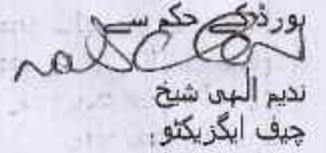 بورڈ کے حکم سے
ندیم الٰہی شیخ
چیف ایگزیکٹو